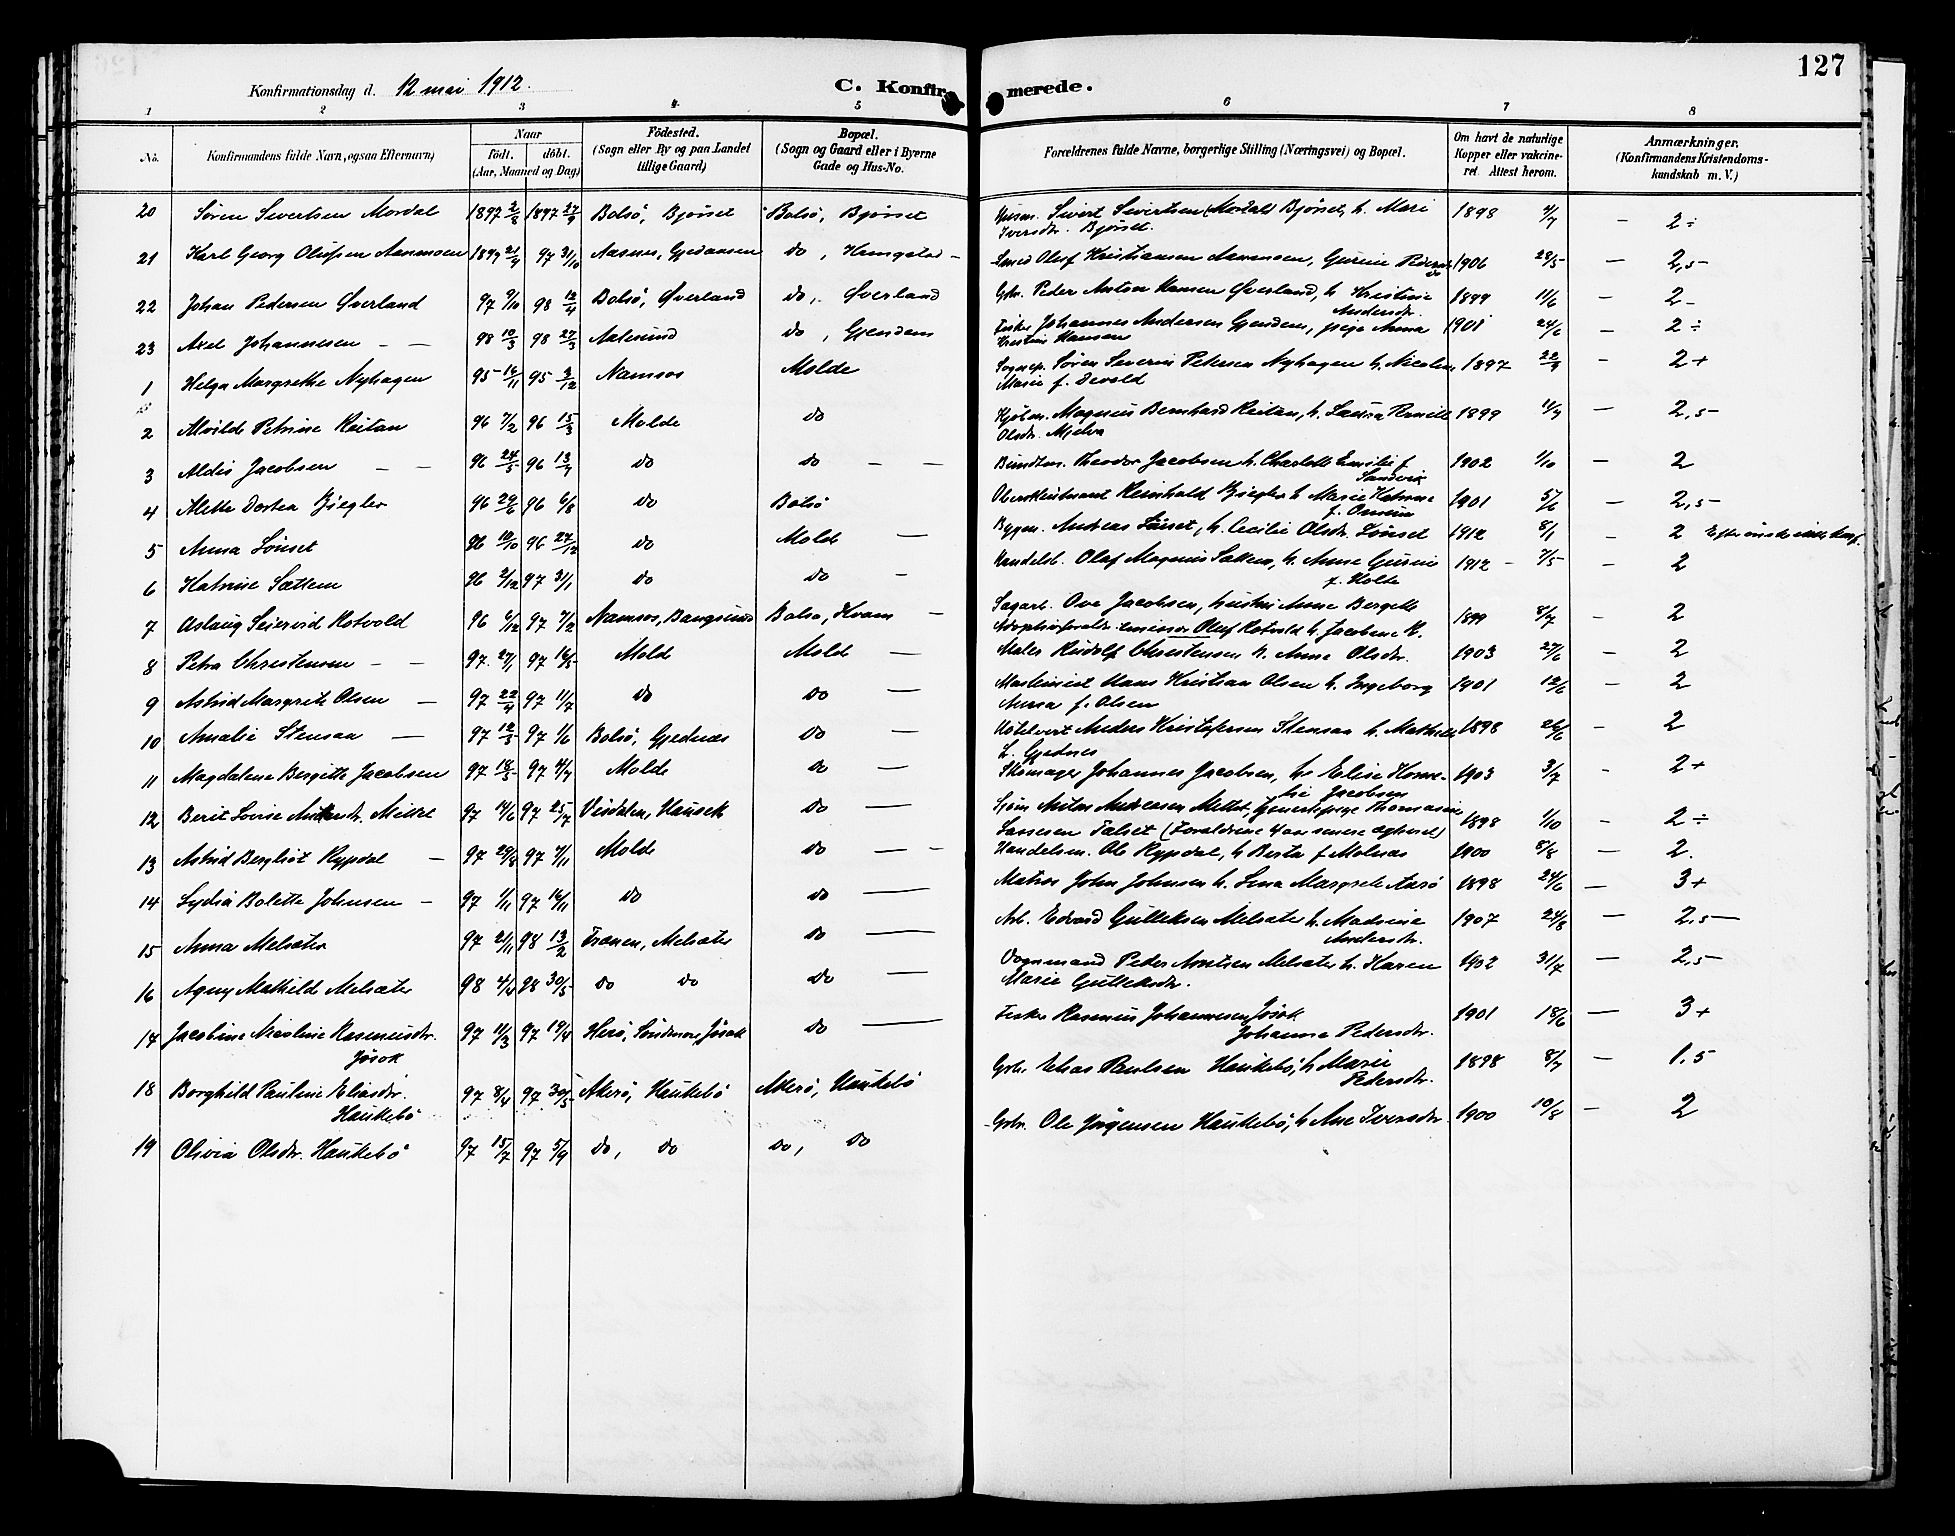 127
Konfirmationsdag d. 12 mai 1912.
C. Konfir merede.
1 2 3 4 5 6 7 8
No. Konfirmandens fulde Navn, ogsaa Efternavn) Naar født. døbt. (Aar, Maaned og Dag) Födested. (Sogn eller By og paa Landet tillige Gaard) Bopæl. (Sogn og Gaard eller i Byerne Gade og Hus-No. Forældrenes fulde Navne, borgerlige Stilling (Næringsvei) og Bopæl. Om havt de naturlige Kopper eller vakcineret. Attest herom. Anmærkninger. (Konfirmandens Kristendomskundskab m. V.)
20 Søren Sivertsen Mordal 1897 2/8 1897 27/9 Bolsö, Bjørset Bolsö, Bjørset Husm. Sivert Sivertsen (Mordal) Bjørset, h. Mari 1898 4/7 – 2 ÷
Iversdtr. Bjørset.
21 Karl Georg Olufsen Aanensen 1897 21/4 97 31/10 do, Smed Oluf Kristiansen Aanensen, Gurine 1906 28/5 – 2,5 –
22 Johan Pedersen Øverland 97 9/10 98 12/4 Bolsö, Øverland do, Øverland Gbr. Peder Anton Hansen Øverland, h. Kristine 1899 11/6 – 2 –
Andersdtr.
23 Axel Johannesen – – 98 10/3 98 27/3 Aalesund do, Gjendem Fisker Johannes Andersen Gjendem, pige Anna 1901 24/6 – 2 ÷
Hansen
1 Helga Margrethe Nyhagen 95 16/11 95 2/12 Namsos Molde Sognepr. Søren Severin Petersen Nyhagen h. Nicoline 1897 22/9 – 2 +
Marie f. Devold
2 Alvilde Petrine Reitan 96 7/2 96 15/3 Molde do Kjøbm. Magnus Bernhard Reitan, h. Laura Pernille 1899 11/7 – 2,5 –
Olsdtr. Mjelva
3 Aldis Jacobsen – – 96 24/5 96 13/7 do do – – Bundtm. Theodor Jacobsen h. Charlotte Emilie f. 1902 1/10 – 2
Sandvik
4 Alette Dortea Ziegler 96 29/6 96 6/8 do Bolsö Oberstleutnant Reinhold Ziegler h. Marie Katrine 1901 5/6 – 2,5 –
5 Anna Lönset 96 10/10 96 27/12 do Molde – Bygm. Andreas Lönset, h. Cecilie Olsdtr. Lönset 1912 8/1 – 2 Efter önske ikke konf.
6 Katrine Sættem 96 2/12 97 31/1 do do – Handelsb. Olaf Magnus Sættem, h. Anne Gurine 1912 – 7/5 – 2
f. Holte
7 Aslaug Seiervid Rotvold 96 6/12 97 7/12 Namsos, Bangsund Bolsö, Kvam – Sagarb. Ove Jacobsen, hustru Anne Bergitte 1899 8/7 – 2
Adoptivforeldr. emissær Oluf Rotvold h. Jacobine R.
8 Petra Christensen – – 97 27/1 97 16/5 Molde Molde – Maler Rudolf Christensen h. Anna Olsdtr. 1903 27/6 – 2
9 Astrid Margrete Olsen – 97 22/4 97 11/7 do do – Maskinist Hans Kristian Olsen h. Ingeborg 1901 12/6 – 2
Anna f. Olsen
10 Amalie Stensaa – 97 12/5 97 1/6 Bolsö, Gjednes do – Hotelvert Anders Kristofersen Stensaa h. Mathilde 1898 26/6 – 2
L. Gjednes
11 Magdalene Bergitte Jacobsen 97 18/5 97 4/7 Molde do – Skomager Johannes Jacobsen, h. Elise 1903 3/7 – 2 +
Jacobsen
12 Berit Lovise Andersdtr. Mittet 97 14/6 97 25/7 Visdalen, do – Anton Andersen Mittet, Thomasine 1898 1/10 – 2 ÷
Talset (Forældrene har senere ægtevied)
13 Astrid Bergliot Rypdal – 97 29/8 97 7/11 Molde do – – Handelsm. Ole Rypdal, h. Berta f. Molnes 1900 8/8 – 2.
14 Lydia Bolette Johnsen – 97 1/11 97 16/11 do do – Matros John Johnsen h. Lina Margrete Aarö 1898 24/6 – 3 +
15 Anna Melsæter 97 21/11 98 13/2 Frænen, Melsæter do – Arb. Edvard Gulleksen Melsæter h. Madsine 1907 24/8 – 2,5 –
Andersdtr.
16 Agny Mathild Melsæter 98 4/4 98 30/5 do do do – Vognmand Peder Arntsen Melsæter h. Karen 1902 31/7 – 2,5 –
Marie Gulleksdtr.
17 Jacobine Nicoline Rasmusdtr. 97 11/3 97 19/4 Herö, Söndmør, Jøsok do – Fisker Rasmus Johannesen Jøsok 1901 18/6 – 3 +
Jøsok Johanna Pedersdtr.
18 Borghild Pauline Eliasdtr. 97 8/4 97 30/5 Akerö, Haukebö Akerö, Haukebö Gbr. Elias Paulsen Haukebö, h. Marie 1898 8/7 – 1.5
Haukebö Pedersdtr.
19 Olivia Olsdtr. Haukebö 97 15/7 97 5/9 do, do do, do Gbr. Ole Jørgensen Haukebö, h. Ane Iversdtr. 1900 10/8 – 2